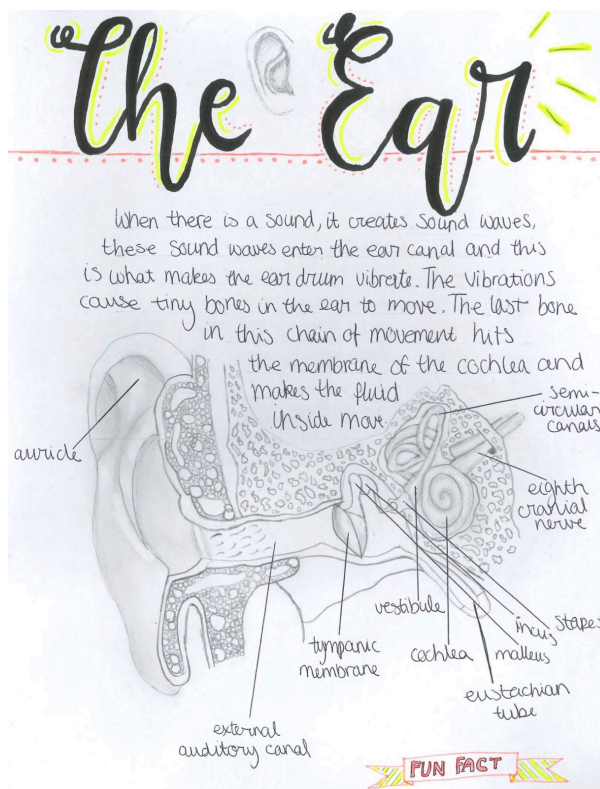 The Ear
When there is a sound, it creates sound waves,
these sound waves enter the ear canal and this
is what makes the ear drum vibrate. The vibrations
cause tiny bones in the ear to move. The last bone
in this chain of movement hits
the membrane of the cochlea and
makes the fluid
inside move.
semi-
circular
canals
auricle
eighth
cranial
nerve
vestibule
incus
stapes
tympanic
membrane
cochlea
malleus
eustachian
tube
external
auditory canal
FUN FACT